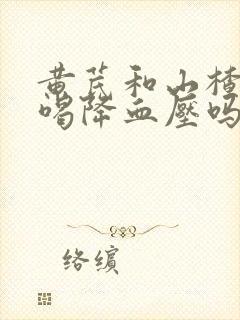 黄芪和山楂
喝降血压吗
络缤